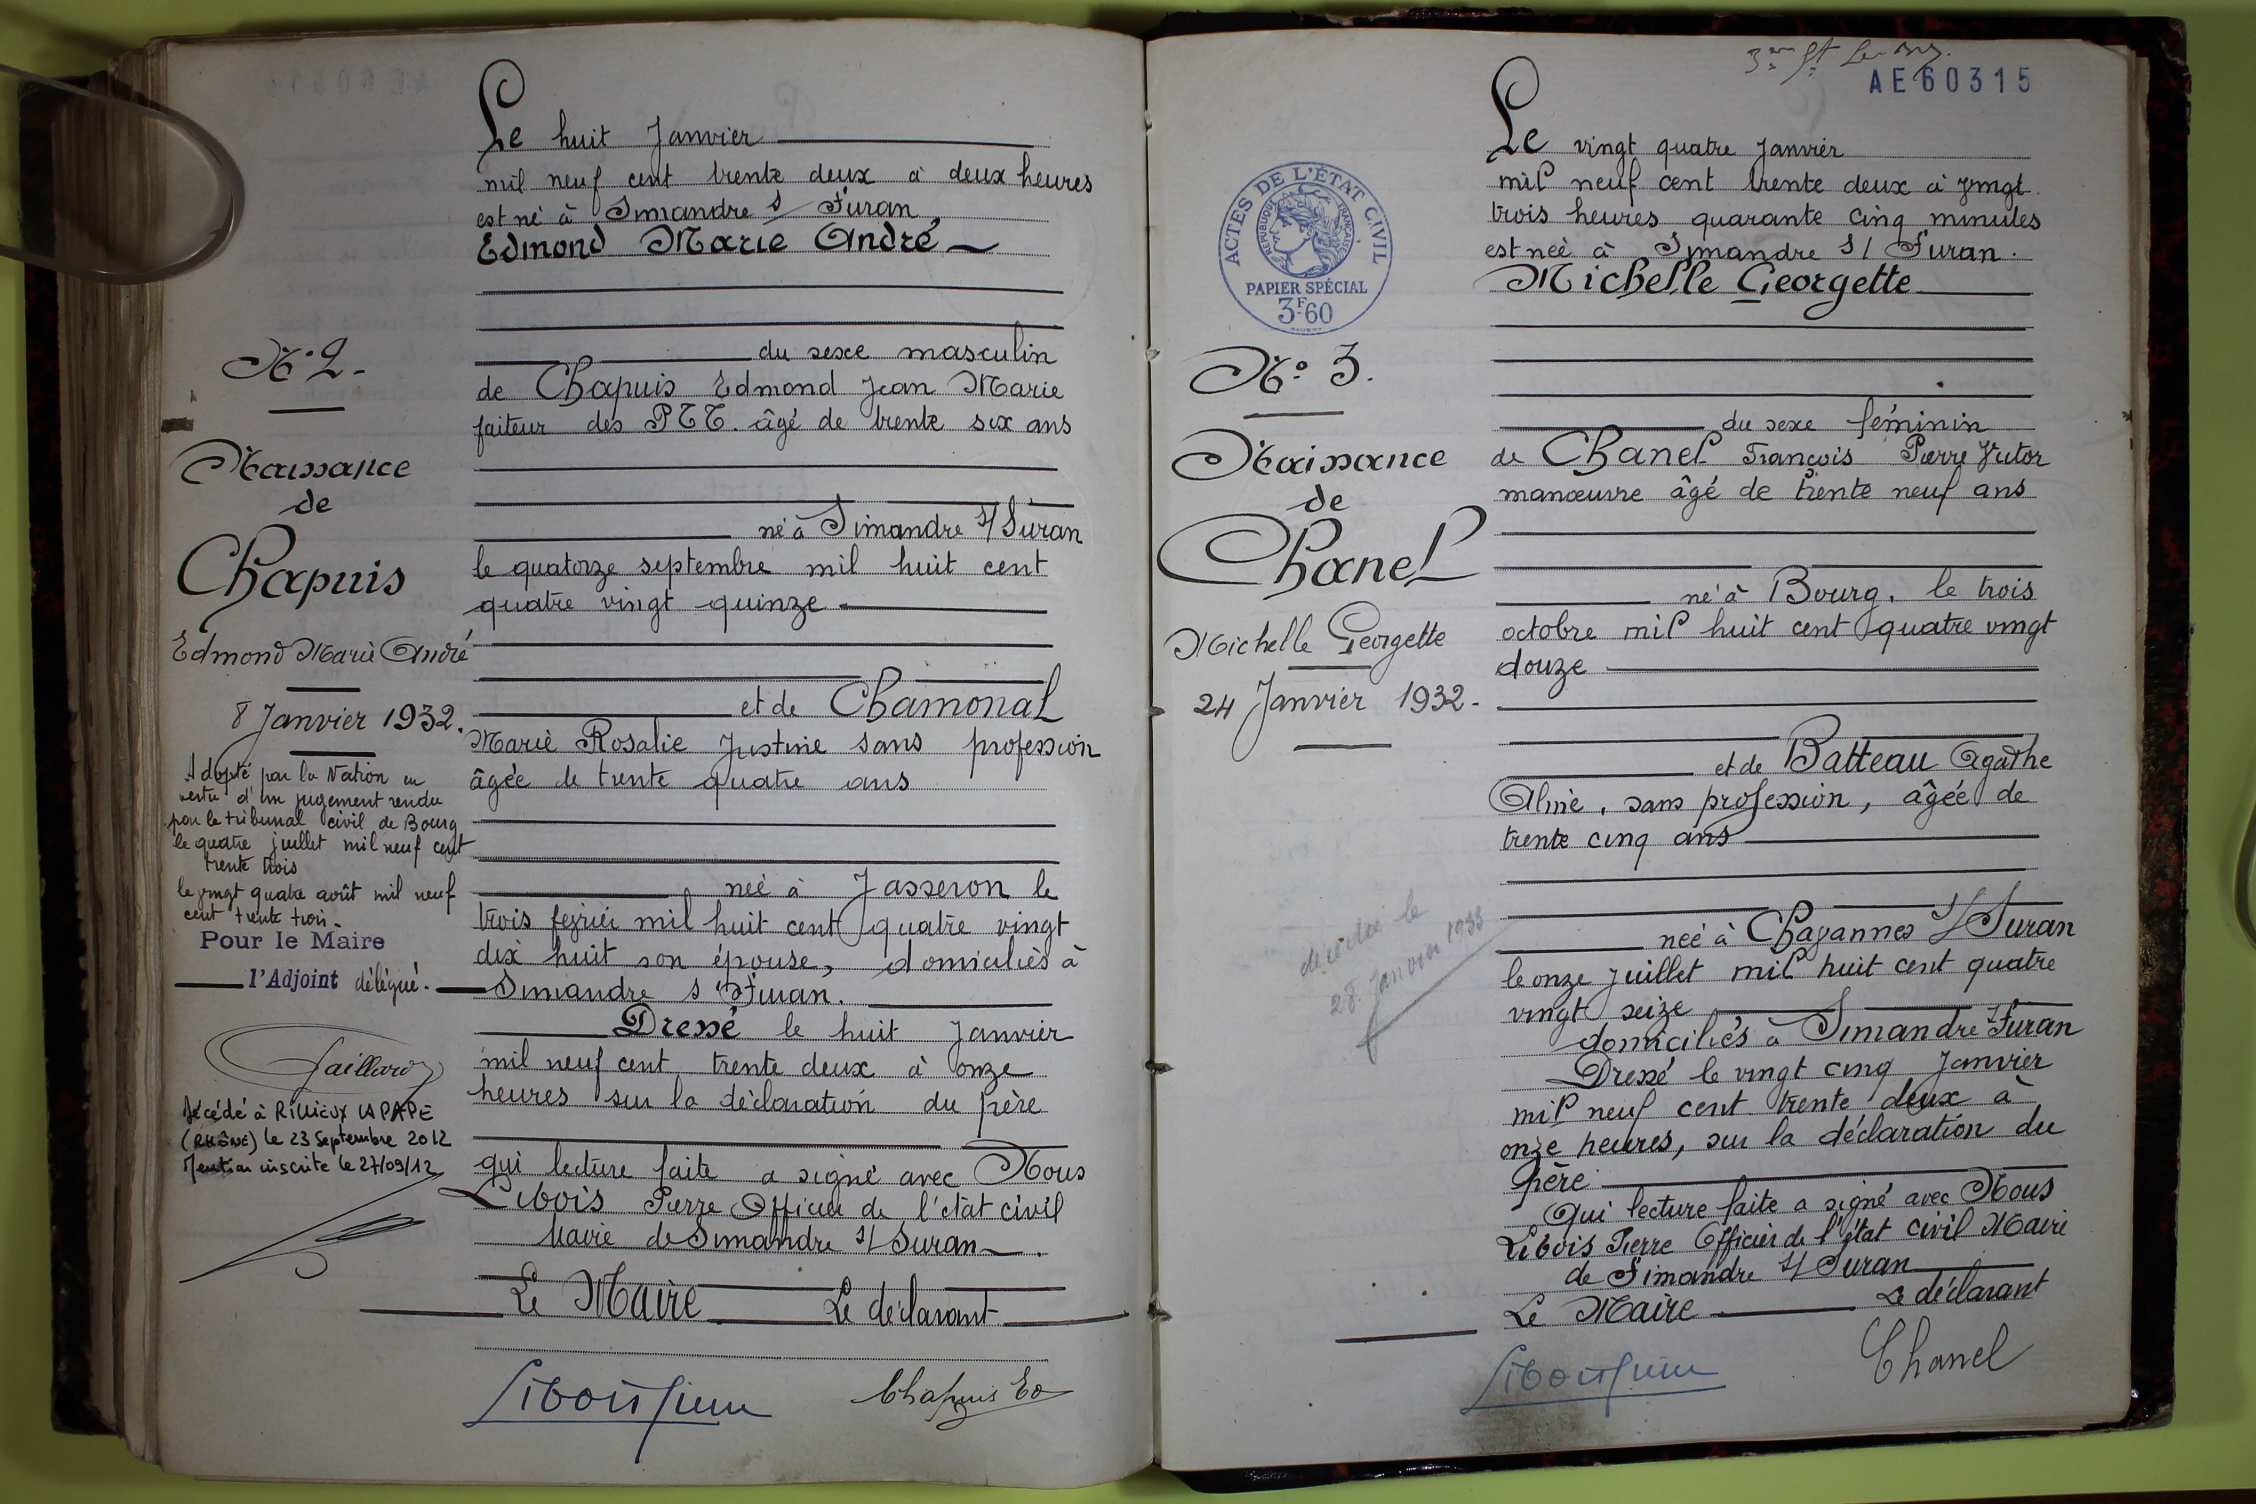 Le huit Janvier
mil neuf cent trente deux à deux heures
est né à Simandre s/ Suran
Edmond Marie André
du sexe masculin
de Chapuis Edmond Jean Marie
facteur des PTT. âgé de trente six ans
né à Simandre s/ Suran
le quatorze septembre mil huit cent
quatre vingt quinze
et de Chamonal
Marie Rosalie Justine sans profession
âgée de trente quatre ans
née à Jasseron le
trois février mil huit cent quatre vingt
dix huit son épouse, domiciliés à
Simandre s/ Suran.
Dressé le huit Janvier
mil neuf cent trente deux à onze
heures sur la déclaration du père
qui lecture faite a signé avec Nous
Libois Pierre Officier de l'état civil
Maire de Simandre s/ Suran.
Le Maire Le déclarant
Chapuis Ed
N° 2-
Naissance
de
Chapuis
Edmond Marie André
8 Janvier 1932.
Adopté par la Nation en
vertu d'un jugement rendu
par le tribunal civil de Bourg
le quatre juillet mil neuf cent
trente trois
le vingt quatre août mil neuf
cent trente trois.
Pour le Maire
l'Adjoint délégué.
Décédé à RILLIEUX LA PAPE
(RHÔNE) le 23 Septembre 2012
Mention inscrite le 27/09/12
AE60315
ACTES DE L'ÉTAT CIVIL
RÉPUBLIQUE FRANÇAISE
PAPIER SPÉCIAL
3F60
Le vingt quatre Janvier
mil neuf cent trente deux à vingt
trois heures quarante cinq minutes
est née à Simandre s/ Suran.
Michelle Georgette
du sexe féminin
de Chanel François Pierre Victor
manœuvre âgé de trente neuf ans
né à Bourg. le trois
octobre mil huit cent quatre vingt
douze
et de Batteau Agathe
Aline, sans profession, âgée de
trente cinq ans
née à Chavannes s/ Suran
le onze juillet mil huit cent quatre
vingt seize
domiciliés à Simandre s/ Suran
Dressé le vingt cinq Janvier
mil neuf cent trente deux à
onze heures, sur la déclaration du
père
Qui lecture faite a signé avec Nous
Libois Pierre Officier de l'état civil Maire
de Simandre s/ Suran
Le Maire Le déclarant
Chanel
N° 3.
Naissance
de
Chanel
Michelle Georgette
24 Janvier 1932-
décédée le
28 janvier 1933